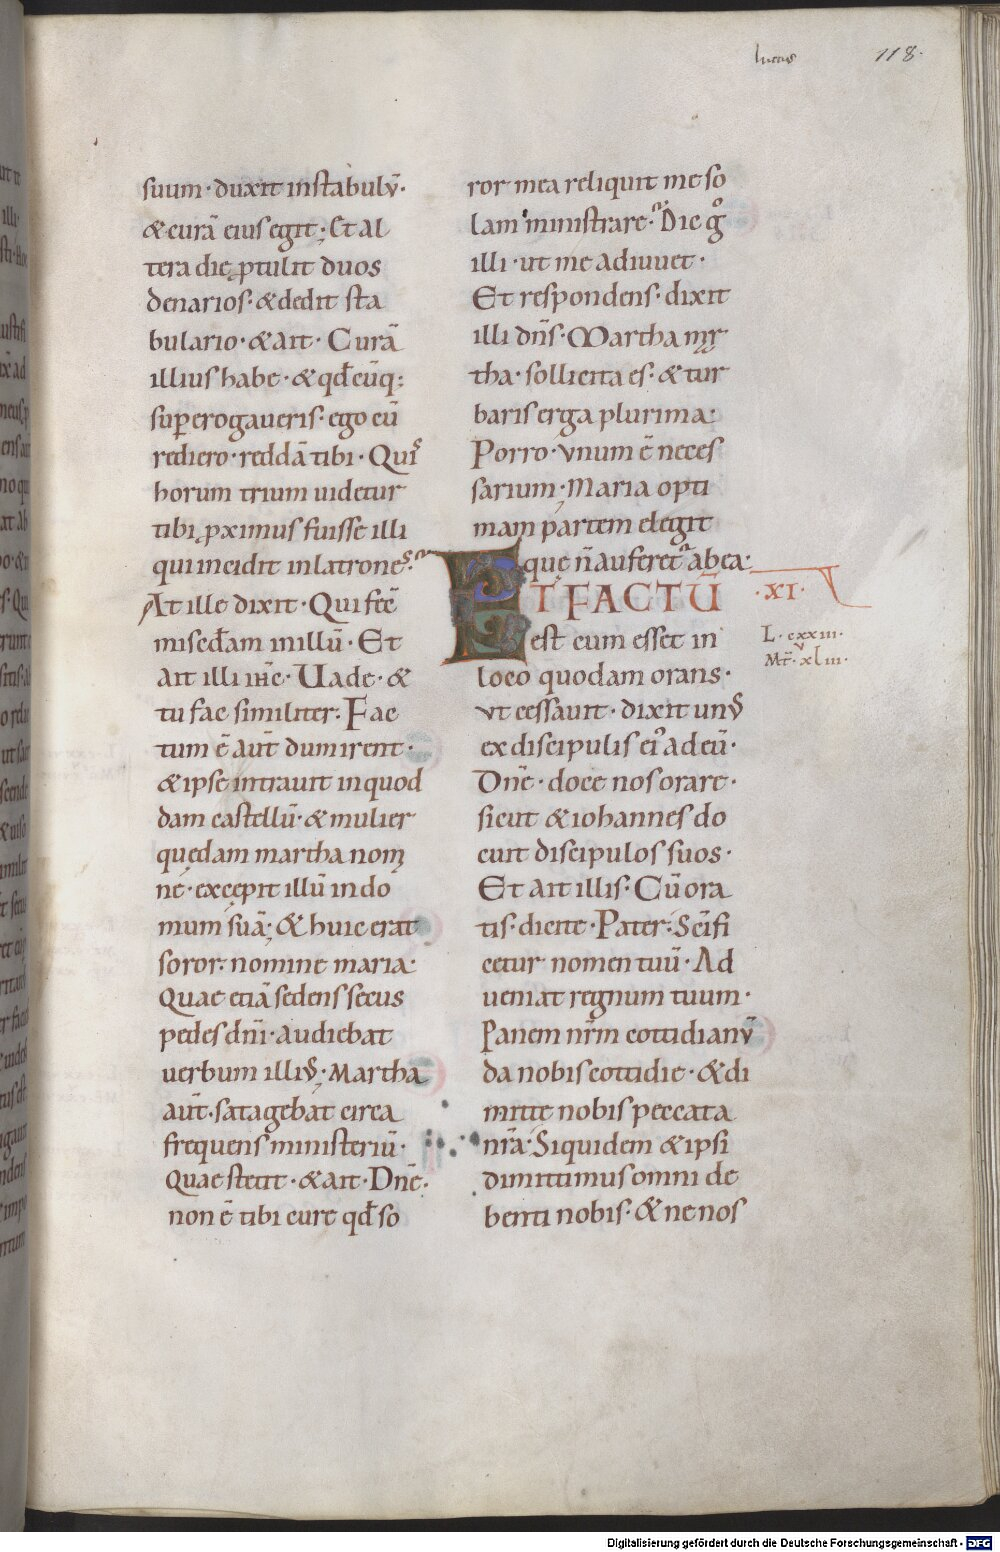 lucas 118.
suum· duxit instabulū·
& curā eius egit; Et al
tera die ꝓtulit duos
denarios· & dedit sta
bulario· & ait· Curā
illius habe· & qđcūq:
suꝑerogaveris· ego cū
rediero· reddā tibi· Quis
horum trium uidetur
tibi ꝓximus fuisse illi
qui incidit in latrones·
At ille dixit· Qui fec̄
miscđam in illū· Et
ait illi ih̄c· Uade· &
tu fac similiter· Fac
tum ē aut̄ dum irent·
& ipse intrauit in quod
dam castellū· & mulier
quędam martha nom
nē· excępit illū in do
mum suā; & huic erat
soror· nomine maria·
Quae etiā sedens secus
pedes dn̄i· audiebat
uerbum illiꝰ· Martha
aut̄· satagebat circa
frequens ministeriū·
Quae stetit· & ait· Dn̄e·
non ē tibi curę qđ so
ror mea reliquit me so
lam ministrare· Dic gͦ
illi· ut me adiuuet·
Et respondens· dixit
illi dn̄s· Martha mar
tha· sollicita es· & tur
baris erga plurima·
Porro· vnum ē neces
sarium· Maria opti
mam partem elegit
quę n̄ auferet᷑ ab ea·
ET FACTŪ ·XI·
est cum esset in L· cxxiii·
loco quodam orans· Mt̄· xliii·
vt cessauit· dixit unꝰ
ex discipulis eiꝰ ad eū·
Dn̄e· doce nos orare·
sicut & iohannes do
cuit discipulos suos·
Et ait illis· Cū ora
tis· dicite· Pater· Sc̄ifi
cetur nomen tuū· Ad
ueniat regnum tuum·
Panem nr̄m cottidianū
da nobis cottidie· & di
mitte nobis peccata
nr̄a· Siquidem & ipsi
dimittimus omni de
benti nobis· & ne nos
Digitalisierung gefördert durch die Deutsche Forschungsgemeinschaft - DFG